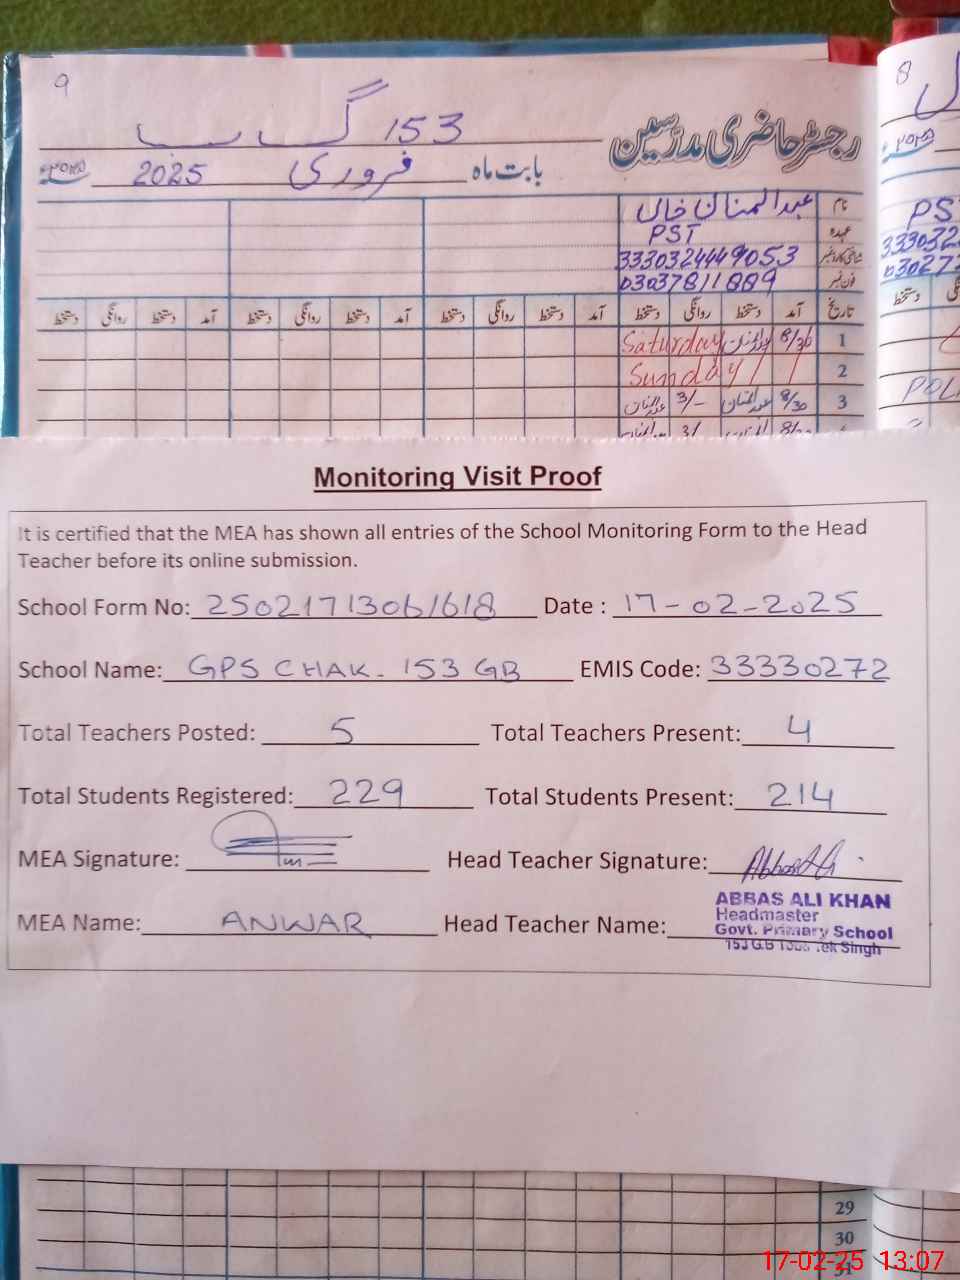 9
153 گ ب
رجسٹر حاضری مدرسین
بابت ماہ فروری 2025
نام عبدالمنان خاں
عہدہ PST
شناختی کارڈ نمبر 3330324449053
فون نمبر 03037811889
تاریخ آمد دستخط روانگی دستخط آمد دستخط روانگی دستخط آمد دستخط روانگی دستخط
1 8/30 عبدالمنان Saturday
2 Sunday
3 8/30 عبدالمنان 3/- عبدالمنان
8
PST
Monitoring Visit Proof
It is certified that the MEA has shown all entries of the School Monitoring Form to the Head
Teacher before its online submission.
School Form No: 25021713061618 Date : 17-02-2025
School Name: GPS CHAK. 153 GB EMIS Code: 33330272
Total Teachers Posted: 5 Total Teachers Present: 4
Total Students Registered: 229 Total Students Present: 214
MEA Signature: Head Teacher Signature:
MEA Name: ANWAR Head Teacher Name:
ABBAS ALI KHAN
Headmaster
Govt. Primary School
153 G.B Toba Tek Singh
29
30
31
17-02-25 13:07